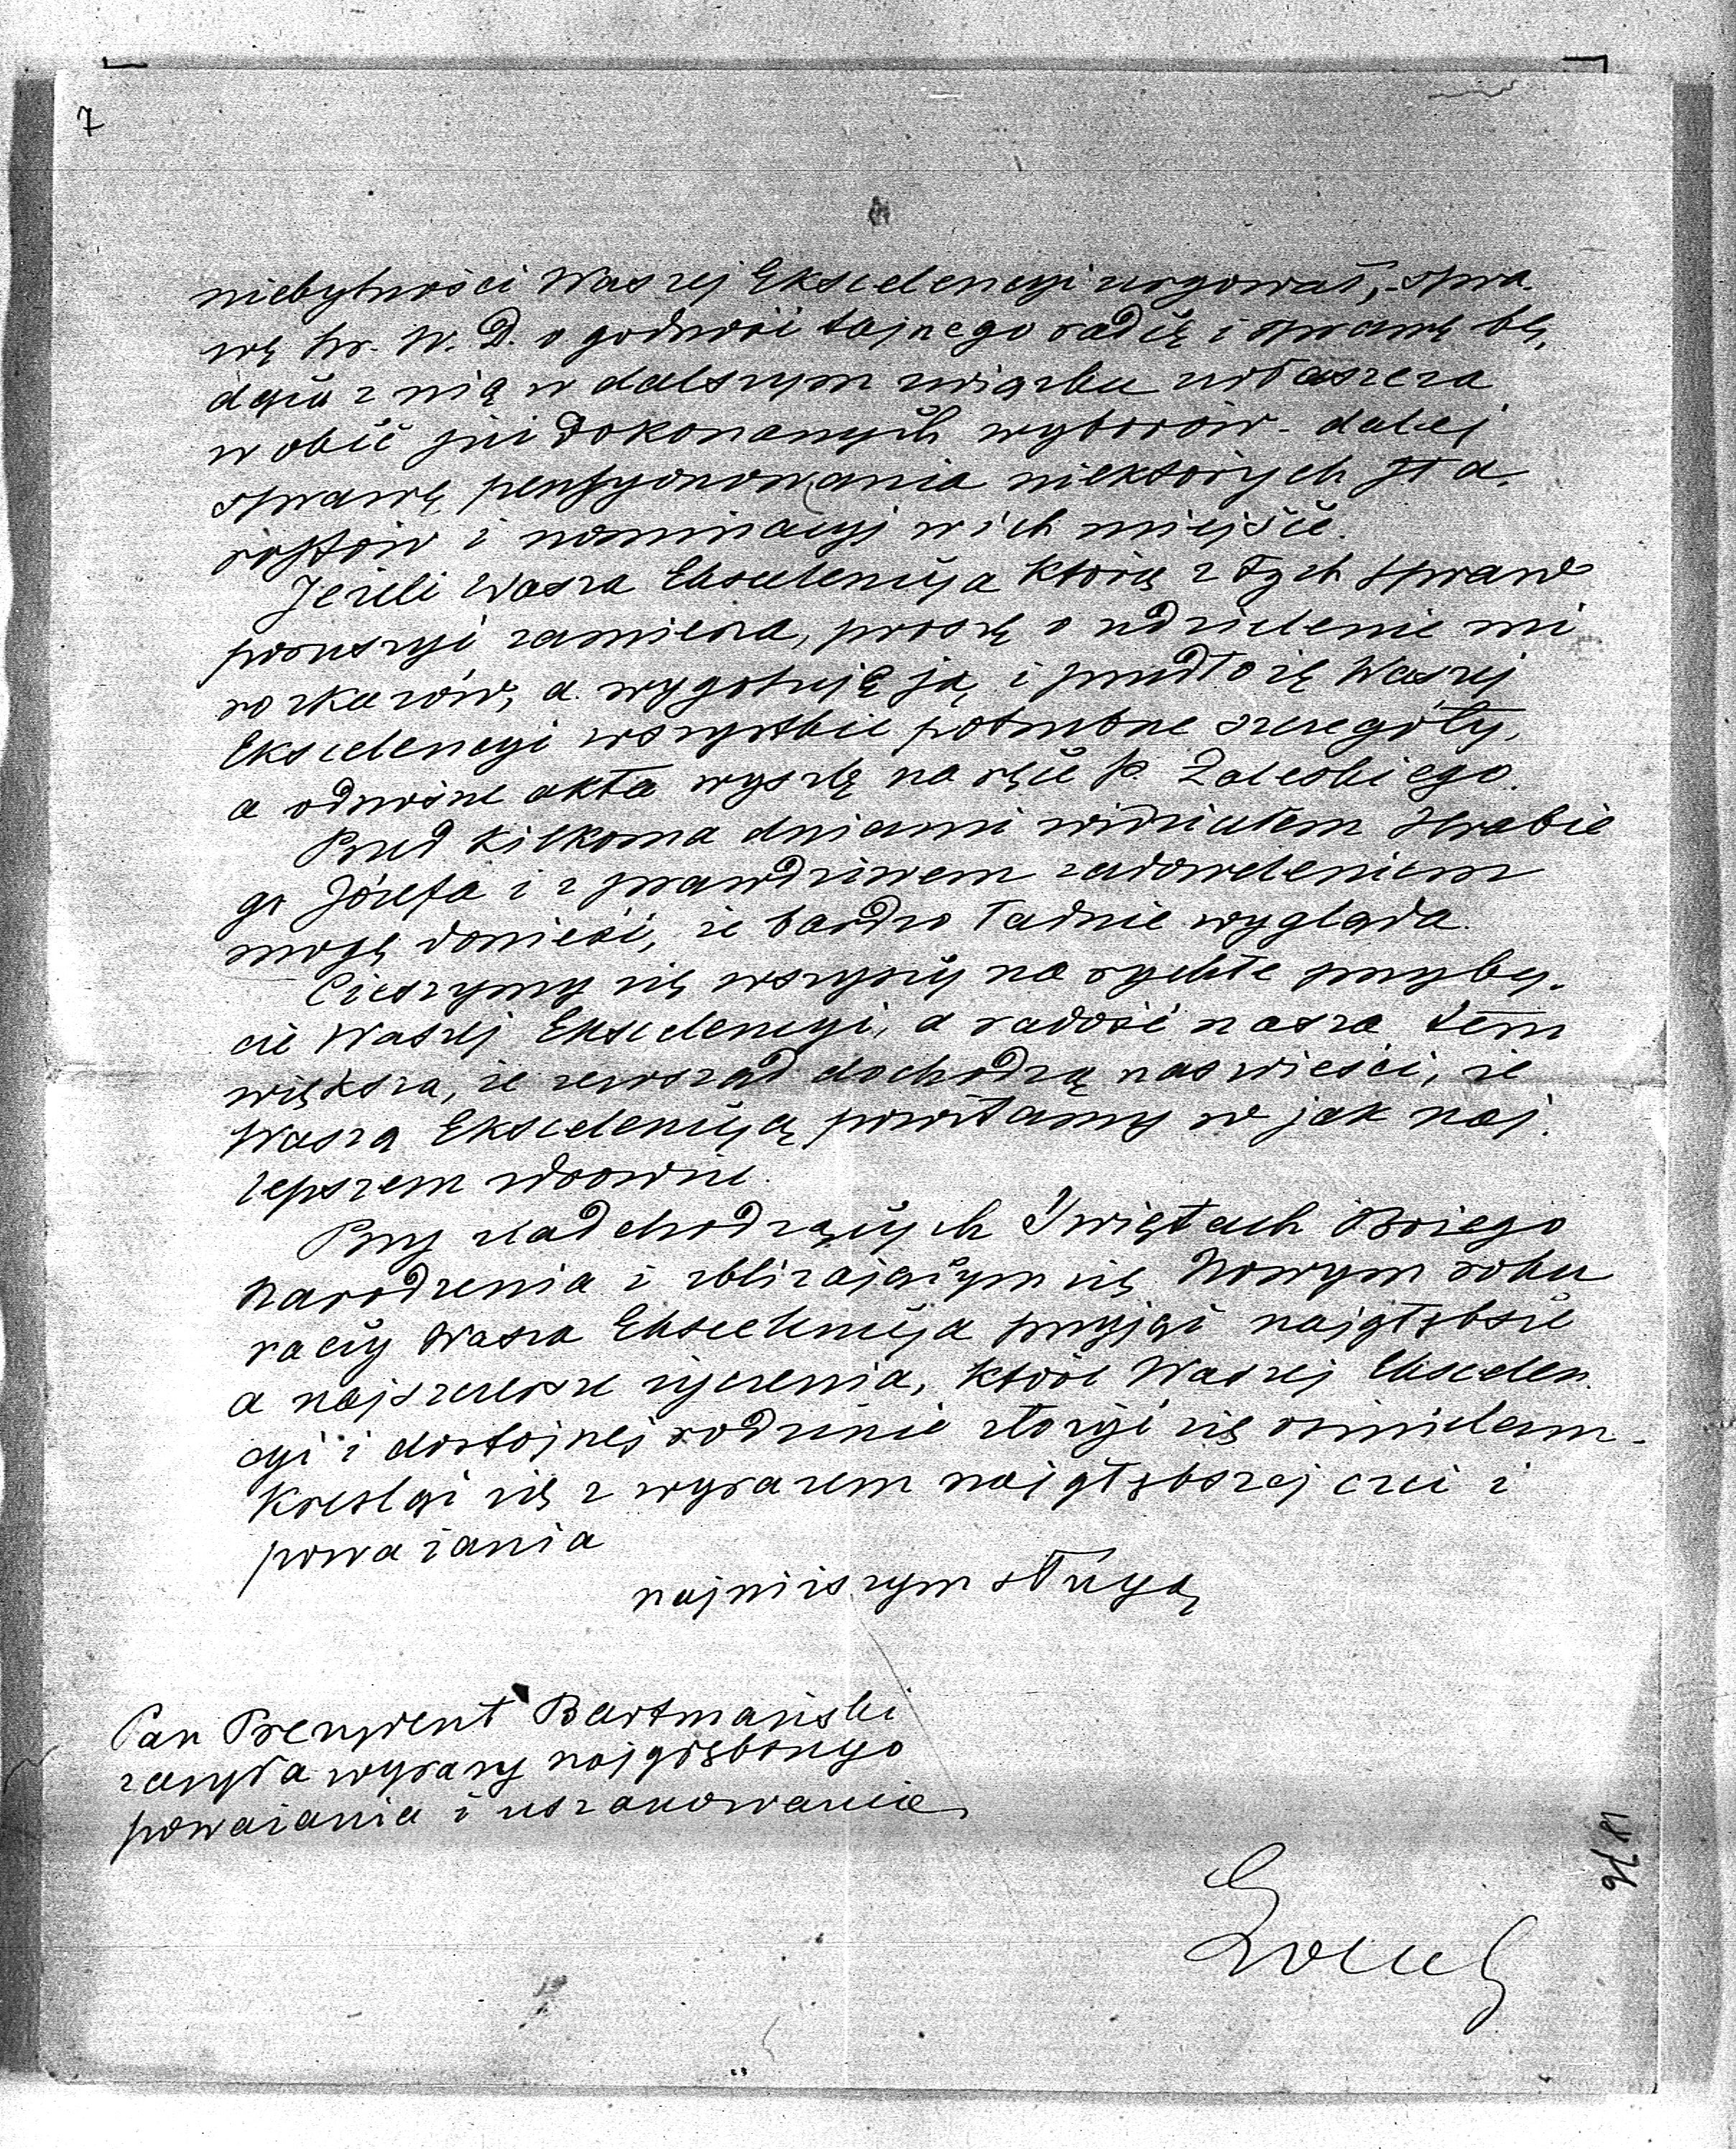 7
niebytności Waszej Ekscelencyi urgować, - spra-
wę hr. W. D. o godność tajnego radcę i sprawę bę-
dącą z nią w dalszym związku zwłaszcza
wobec już dokonanych wyborów - dalej
sprawę pensyonowania niektórych sta-
rostów i nominacyj w ich miejsce.
Jeżeli Wasza Ekscelencyja którą z tych spraw
poruszyć zamierza, proszę o udzielenie mi
rozkazów, a wygotuję ją i przedłożę Waszej
Ekscelencyi wszystkie potrzebne szczegóły,
a odnośne akta wyszlę na ręce p. Zaleskiego.
Przed kilkoma dniami widziałem Hrabie-
go Józefa i z prawdziwem zadowoleniem
mogę donieść, że bardzo ładnie wygląda.
Cieszymy się wszyscy na rychłe przyby-
cie Waszej Ekscelencyi, a radość nasza tem
większa, że zewsząd dochodzą nas wieści, że
Waszą Ekscelencyją powitamy w jak naj-
lepszem zdrowiu.
Przy nadchodzących Świętach Bożego
Narodzenia i zbliżającym się Nowym roku
raczy Wasza Ekscelencyja przyjąć najgłębsze
a najszczersze życzenia, które Waszej Ekscelen-
cyi i dostojnej rodzinie złożyć się ośmielam -
Kreśląc się z wyrazem najgłębszej czci i
poważania
najniższym sługą
Pan Prezydent Bartmański
zasyła wyrazy najgłębszego
poważania i uszanowania